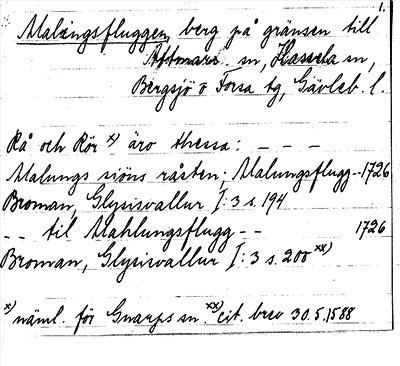 1.
Malungsfluggen, berg på gränsen till
Attmars sn, Hassela sn,
Bergsjö o Forsa tg, Gävleb. l.
Rå och Rör x) äro thessa: – – –
Malungs siöns råsten; Malungsflugg-- 1726
Broman, Glysisvallur I:3 s. 194
-- til Mahlungsflugg -- 1726
Broman, Glysisvallur I:3 s. 200 xx)
x) näml. för Gnarps sn. xx) cit. brev 30.5.1588